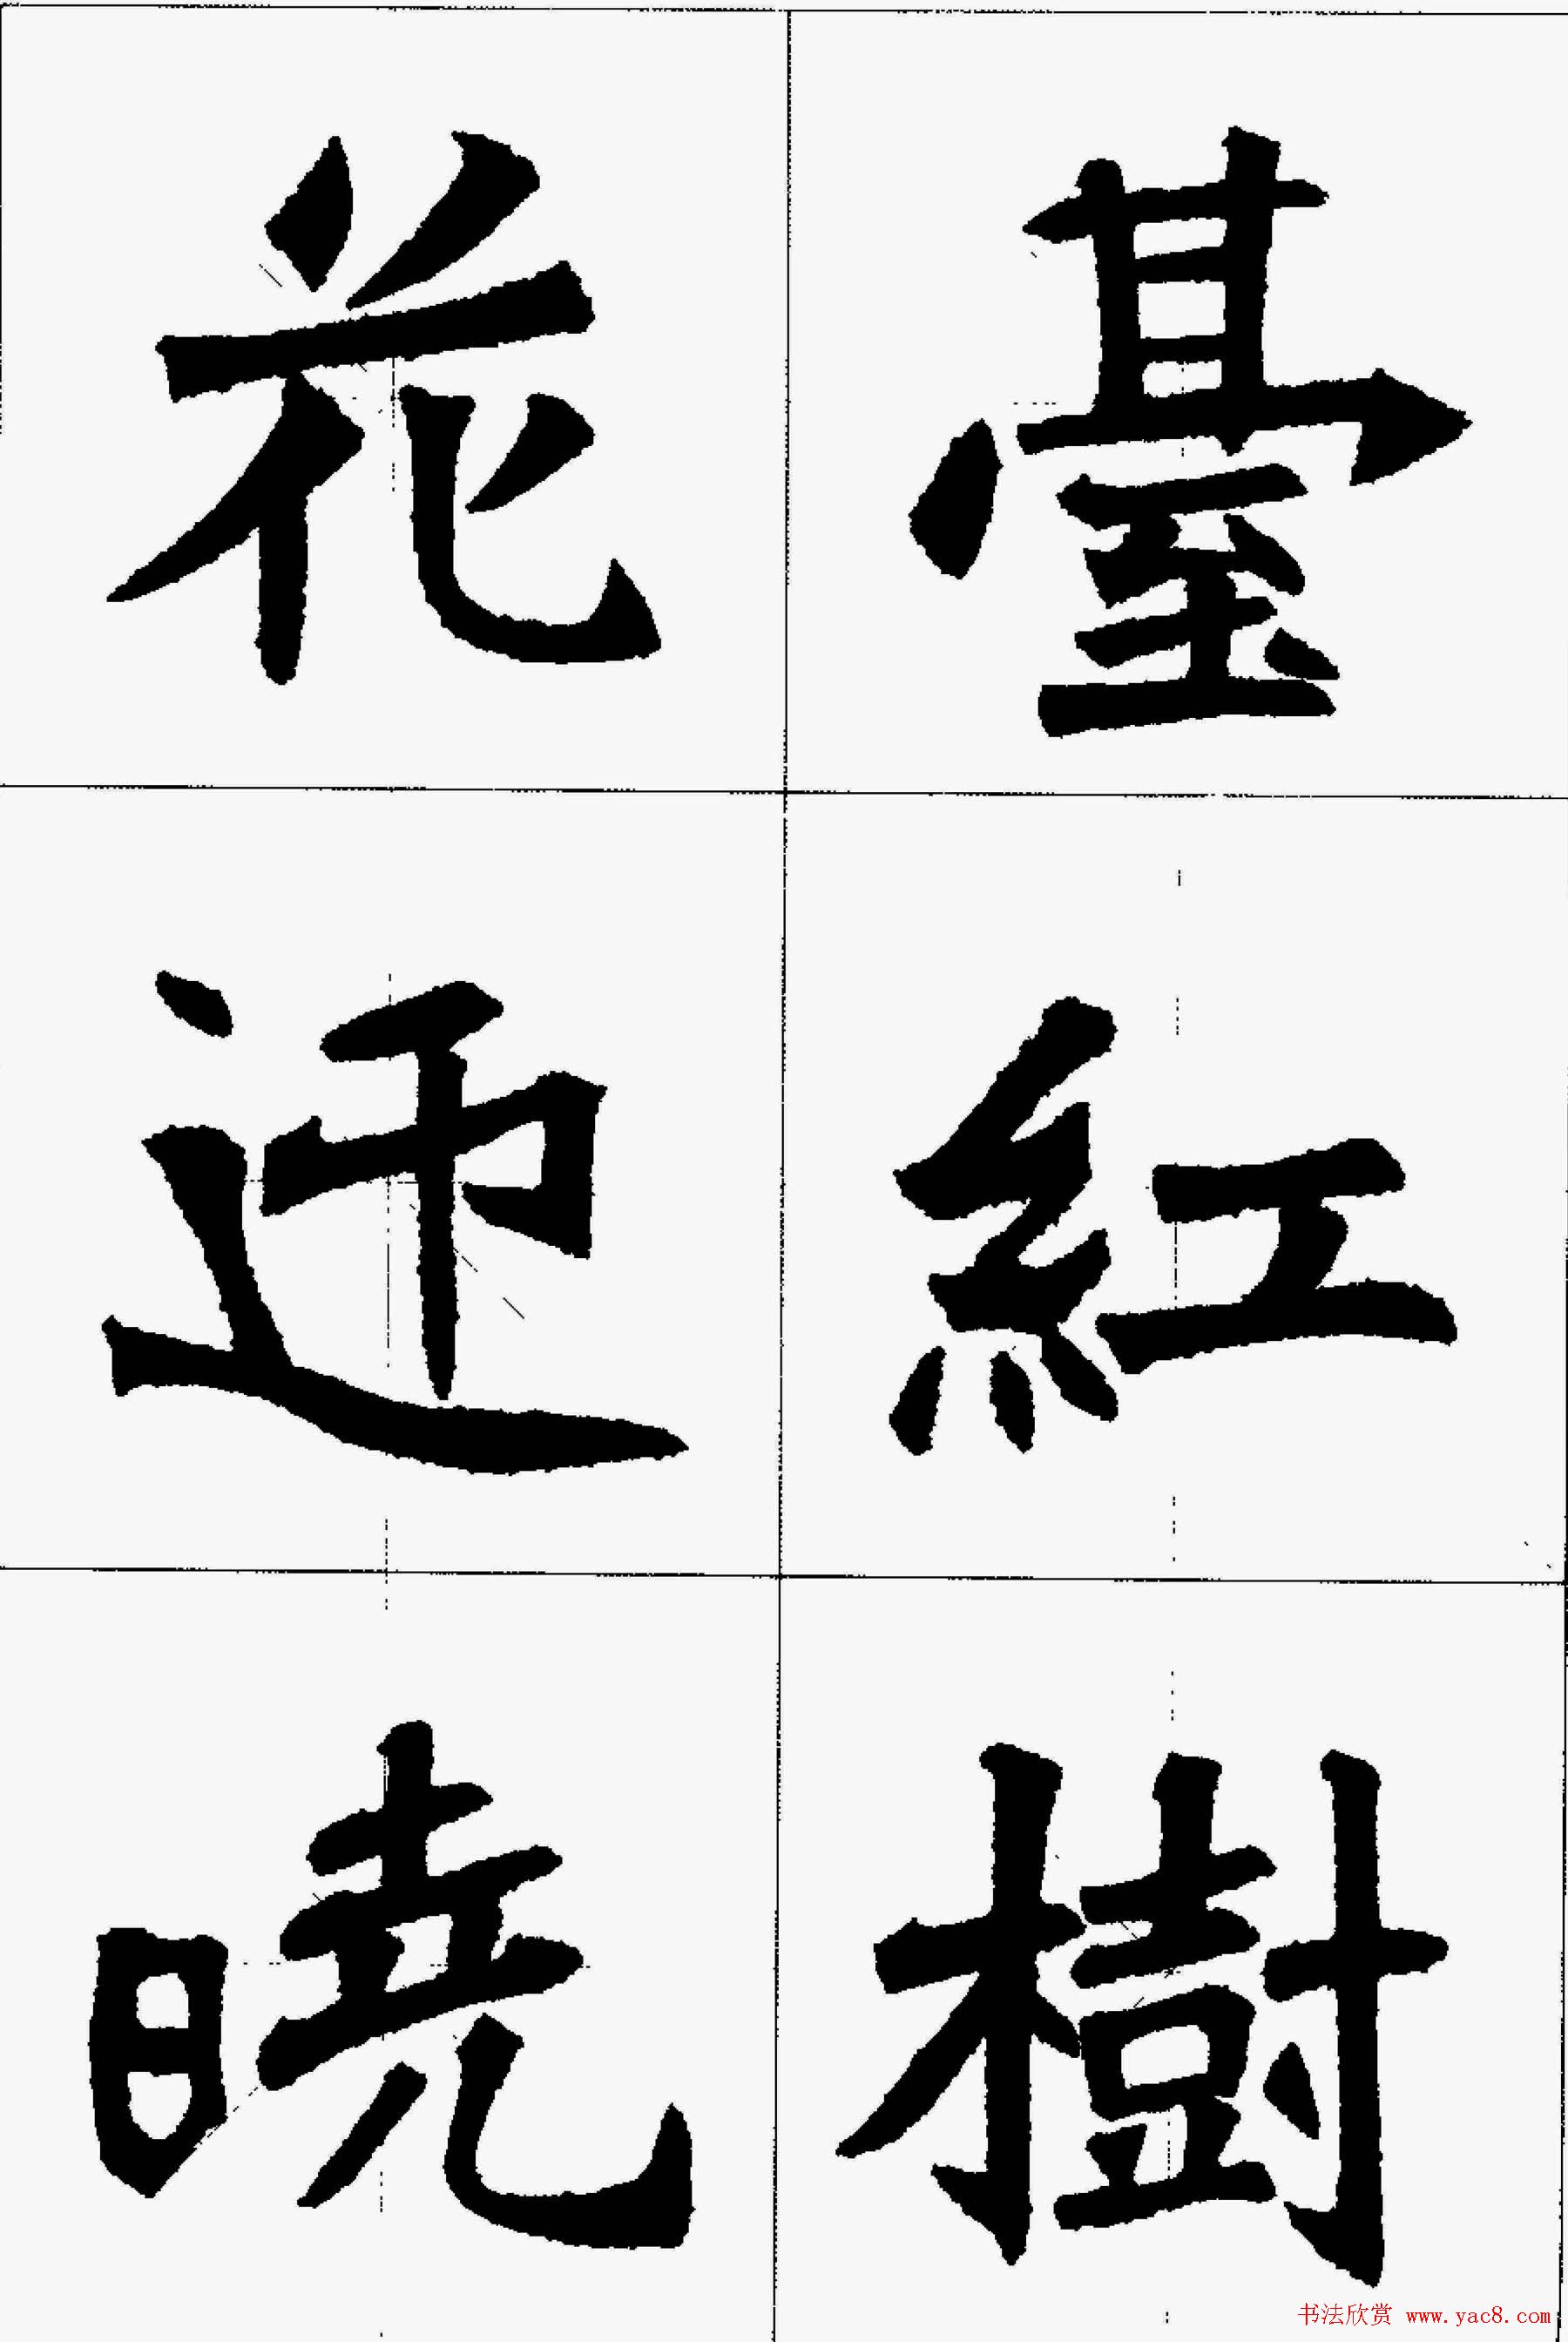 臺紅樹
花迊暁
书法欣赏 www.yac8.com